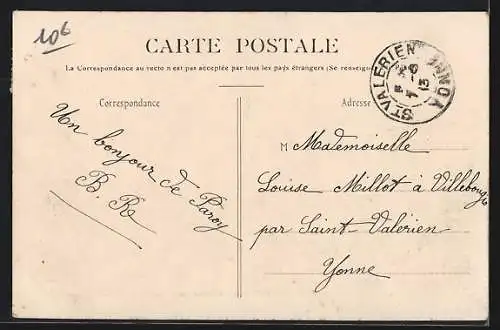 10⁶
CARTE POSTALE
La Correspondance au recto n'est pas acceptée par tous les pays étrangers (Se renseigner
Correspondance
Adresse
ST VALERIEN
YONNE
Un bonjour de Paroy
B. R.
M Mademoiselle
Louise Millot à Villebougis
par Saint-Valérien
Yonne